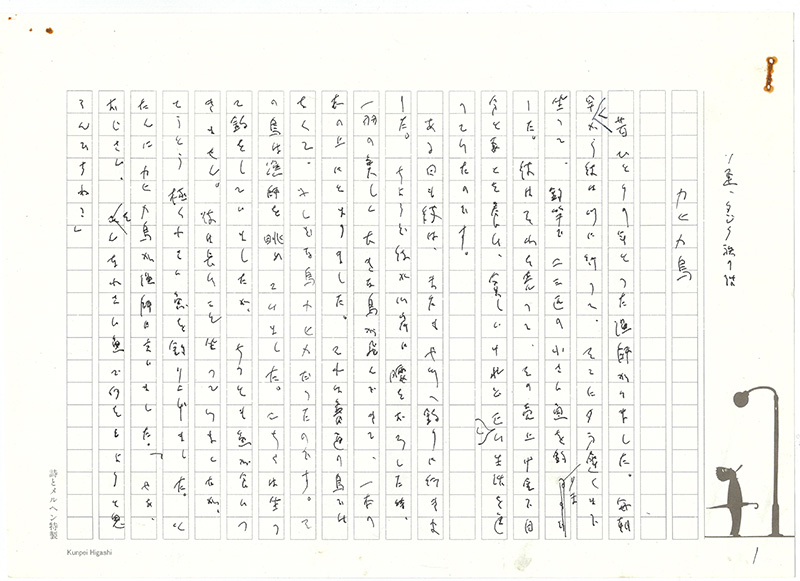 カヒカ鳥
昔ひとりの年とった漁師がいました。毎朝
早くから彼は川に行って、そこに夕方遅くまで
坐って、釣竿で二三匹の小さい魚を釣りま
した。彼はそれを売って、その売上げ金で自
分と妻とを養い、貧しいけれど正しい生活を送
っていたのです。
ある日も彼は、またもや釣りに行きま
した。ちょうど彼が川岸に腰をおろした時、
一羽の美しい大きな鳥が飛んできて、一本の
木の上にとまりました。それは普通の鳥では
なくて、ふしぎな鳥カヒカだったのです。そ
の鳥は漁師を眺めていました。こちらは坐っ
て釣をしていましたが、ちっとも魚が食いつ
きません。彼は長いこと坐っていましたが、
とうとう極く小さい魚を釣り上げました。と
たんにカヒカ鳥が漁師に言いました。「やあ、
おじさん、そんな小さい魚で何をしようと思
うんですね？」
詩とメルヘン特製
Kunpei Higashi
1